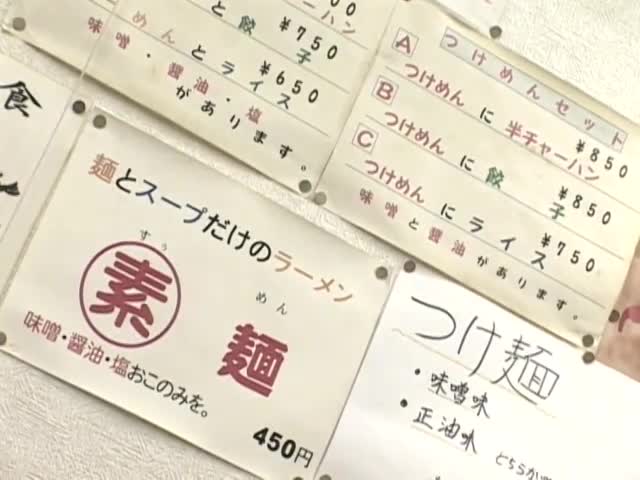 と餃子 ¥750
めんとライス ¥650
味噌・醤油・塩
があります。
つけめんセット
A つけめんに半チャーハン ¥850
B つけめんに餃子 ¥850
C つけめんにライス ¥750
味噌と醤油があります。
食
麺とスープだけのラーメン
すっ めん
素麺
味噌・醤油・塩おこのみを。
450円
つけ麺
・味噌味
・正油味
どちらか